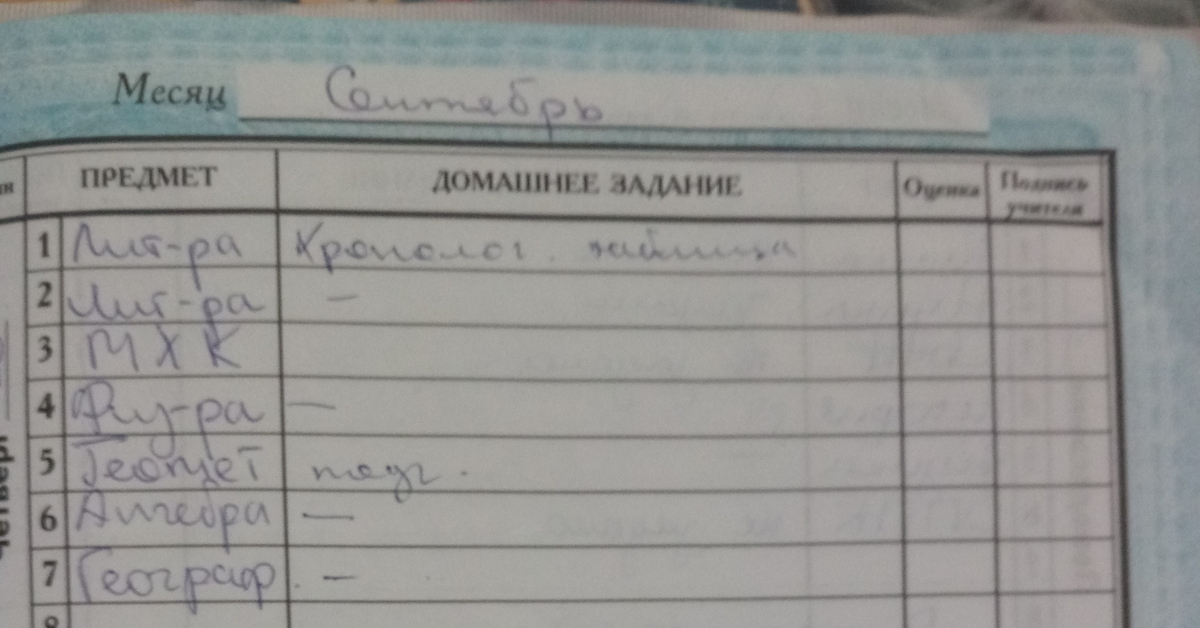 Месяц Сентябрь
ПРЕДМЕТ ДОМАШНЕЕ ЗАДАНИЕ Оценка Подпись учителя
1 Лит-ра Хронолог. таблица
2 Лит-ра —
3 МХК
4 Физ-ра —
5 Геомет
6 Алгебра —
7 Географ. —
8